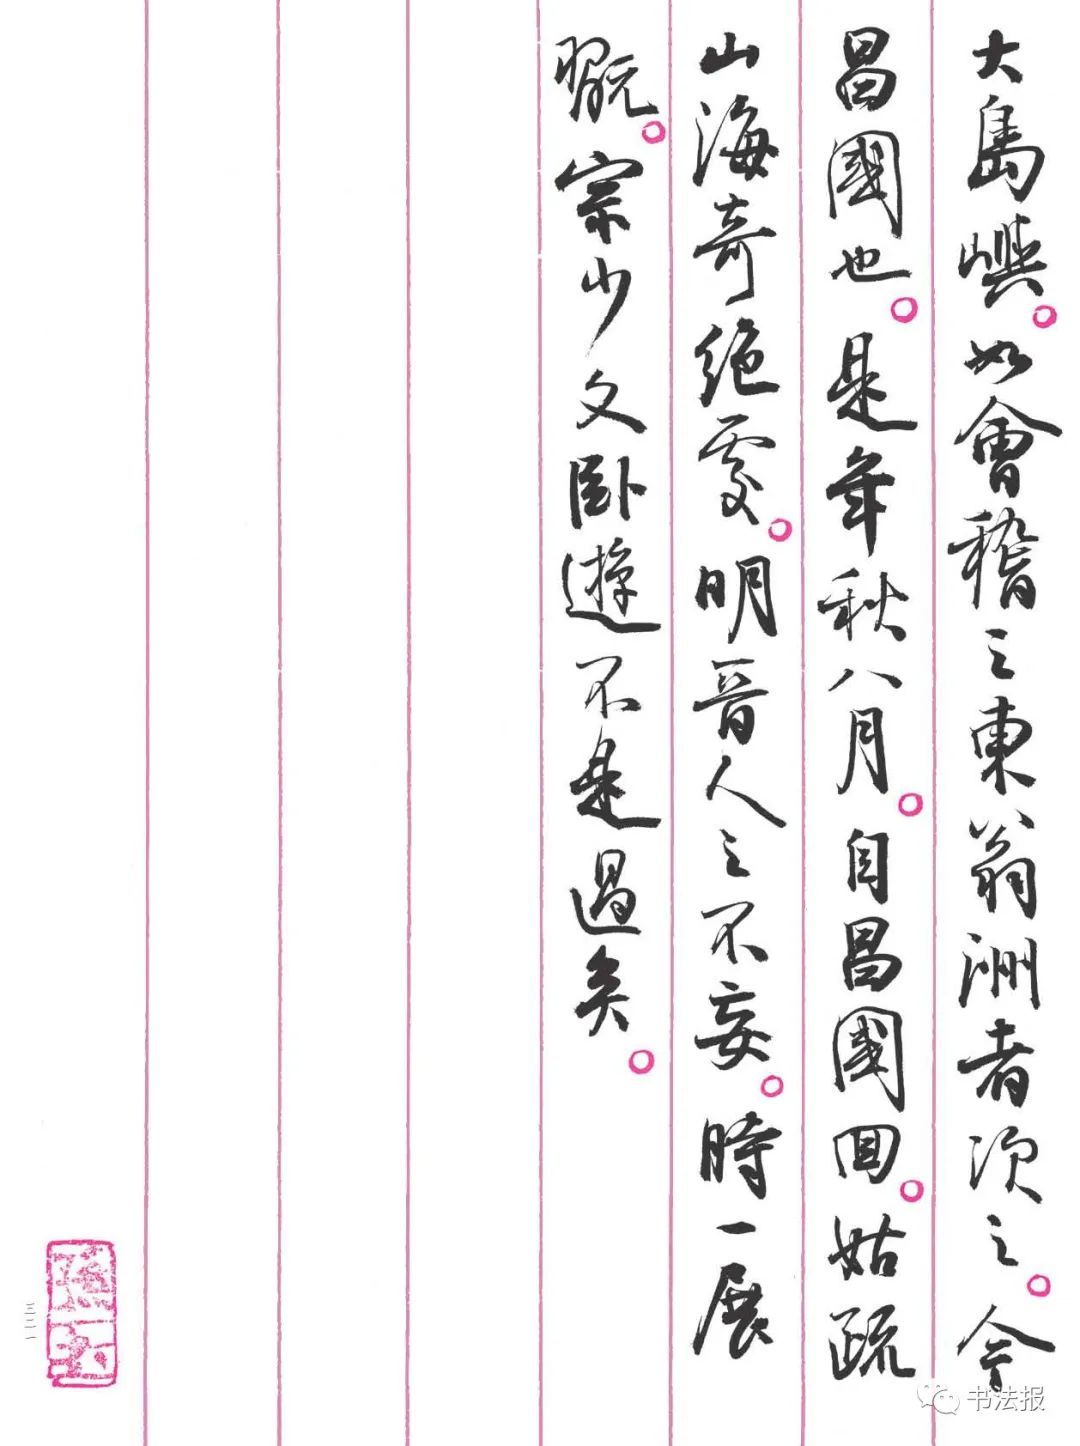 大島嶼。如會稽之東翁洲者次之。今
昌國也。是年秋八月。自昌國回。姑疏
山海奇絕處。明晉人之不妄。時一展
翫。宗少文卧遊不是過矣。
三二一
书法报